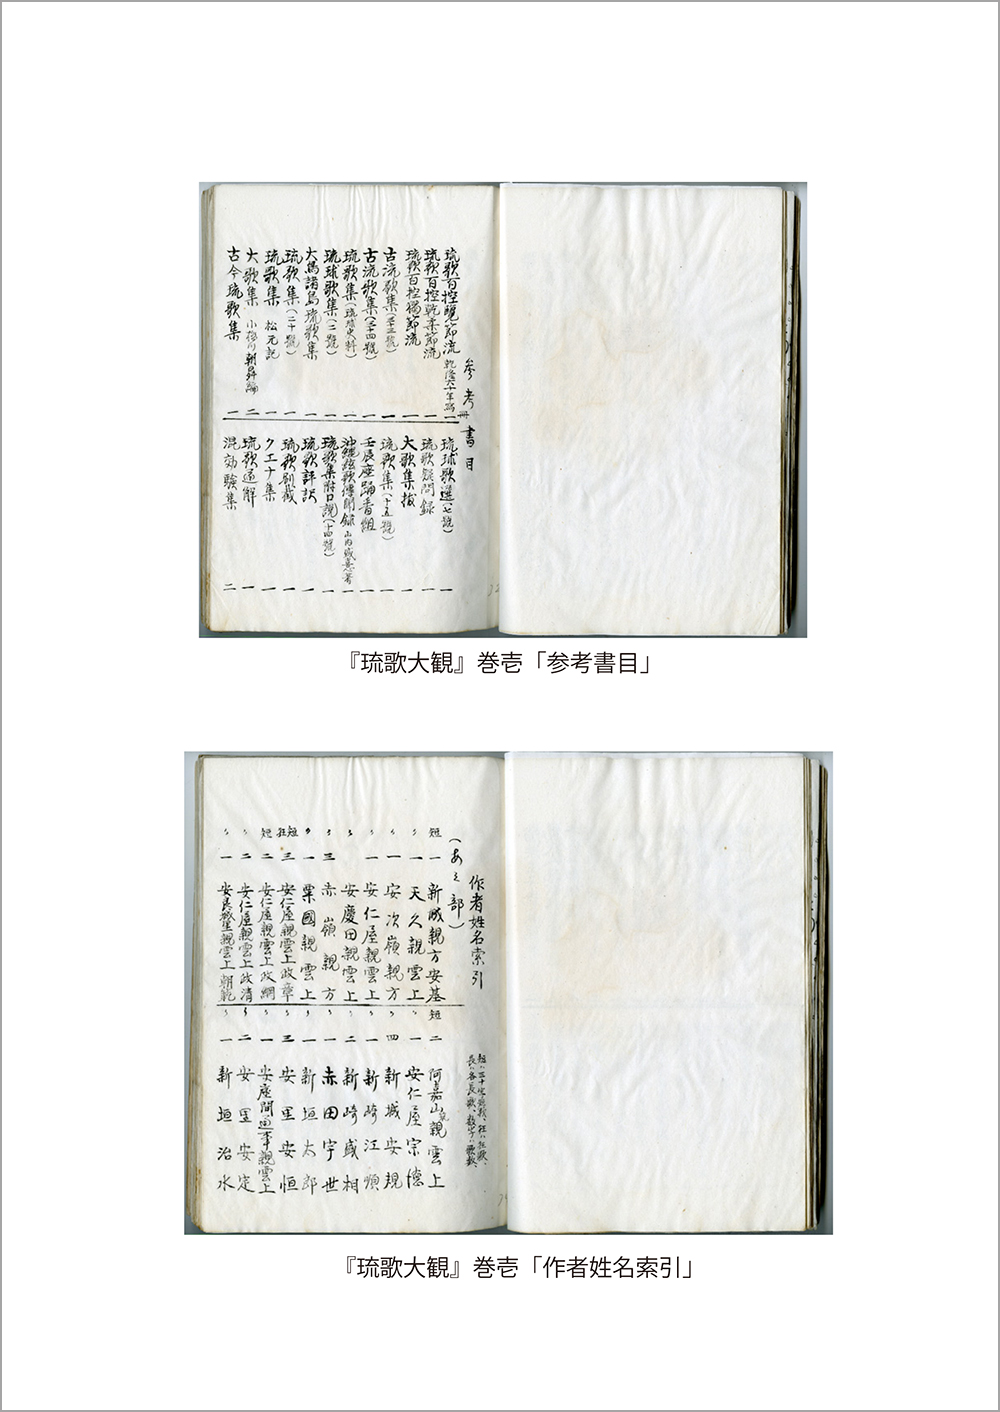 参考書目
冊
琉歌百控覧節流 乾隆六十年 一
琉歌百控乾柔節流 一
琉歌百控独節流 一
古流歌集(三十三號) 一
古流歌集(三十四號) 一
琉歌集(琉球史料) 一
琉球歌集(二號) 一
大島諸島琉歌集 一
琉歌集(二十號) 一
琉歌集 松元記 一
大歌集 小橋川朝昇編 二
古今琉歌集 一
琉球歌選(七號) 一
琉歌疑問録 一
大歌集抜 一
琉歌集(十五號) 一
壬辰座踊番組 一
沖縄絃歌傳聞録 山内盛憙著 一
琉歌集附口説(十四號) 一
琉歌評訳 一
琉歌別裁 一
クエナ集 一
琉歌通解 一
混効驗集 二
『琉歌大観』巻壱「参考書目」
作者姓名索引
(あ之部)
短 一 新城親方安基
〃 一 天久親雲上
〃 一 安次嶺親方
〃 一 安仁屋親雲上
〃 安慶田親雲上
〃 三 赤嶺親方
〃 一 粟國親雲上
短狂 三 安仁屋親雲上政章
短 二 安仁屋親雲上政綱
〃 二 安仁屋親雲上政清
〃 一 親雲上朝乾
短 二 阿嘉山親雲上
〃 一 安仁屋宗德
〃 四 新城安規
〃 一 新崎江順
〃 二 新崎盛相
〃 一 赤田宇世
〃 一 新垣太郎
〃 三 安里安恒
安座間通事親雲上
〃 二 安里安定
〃 一 新垣治水
『琉歌大観』巻壱「作者姓名索引」